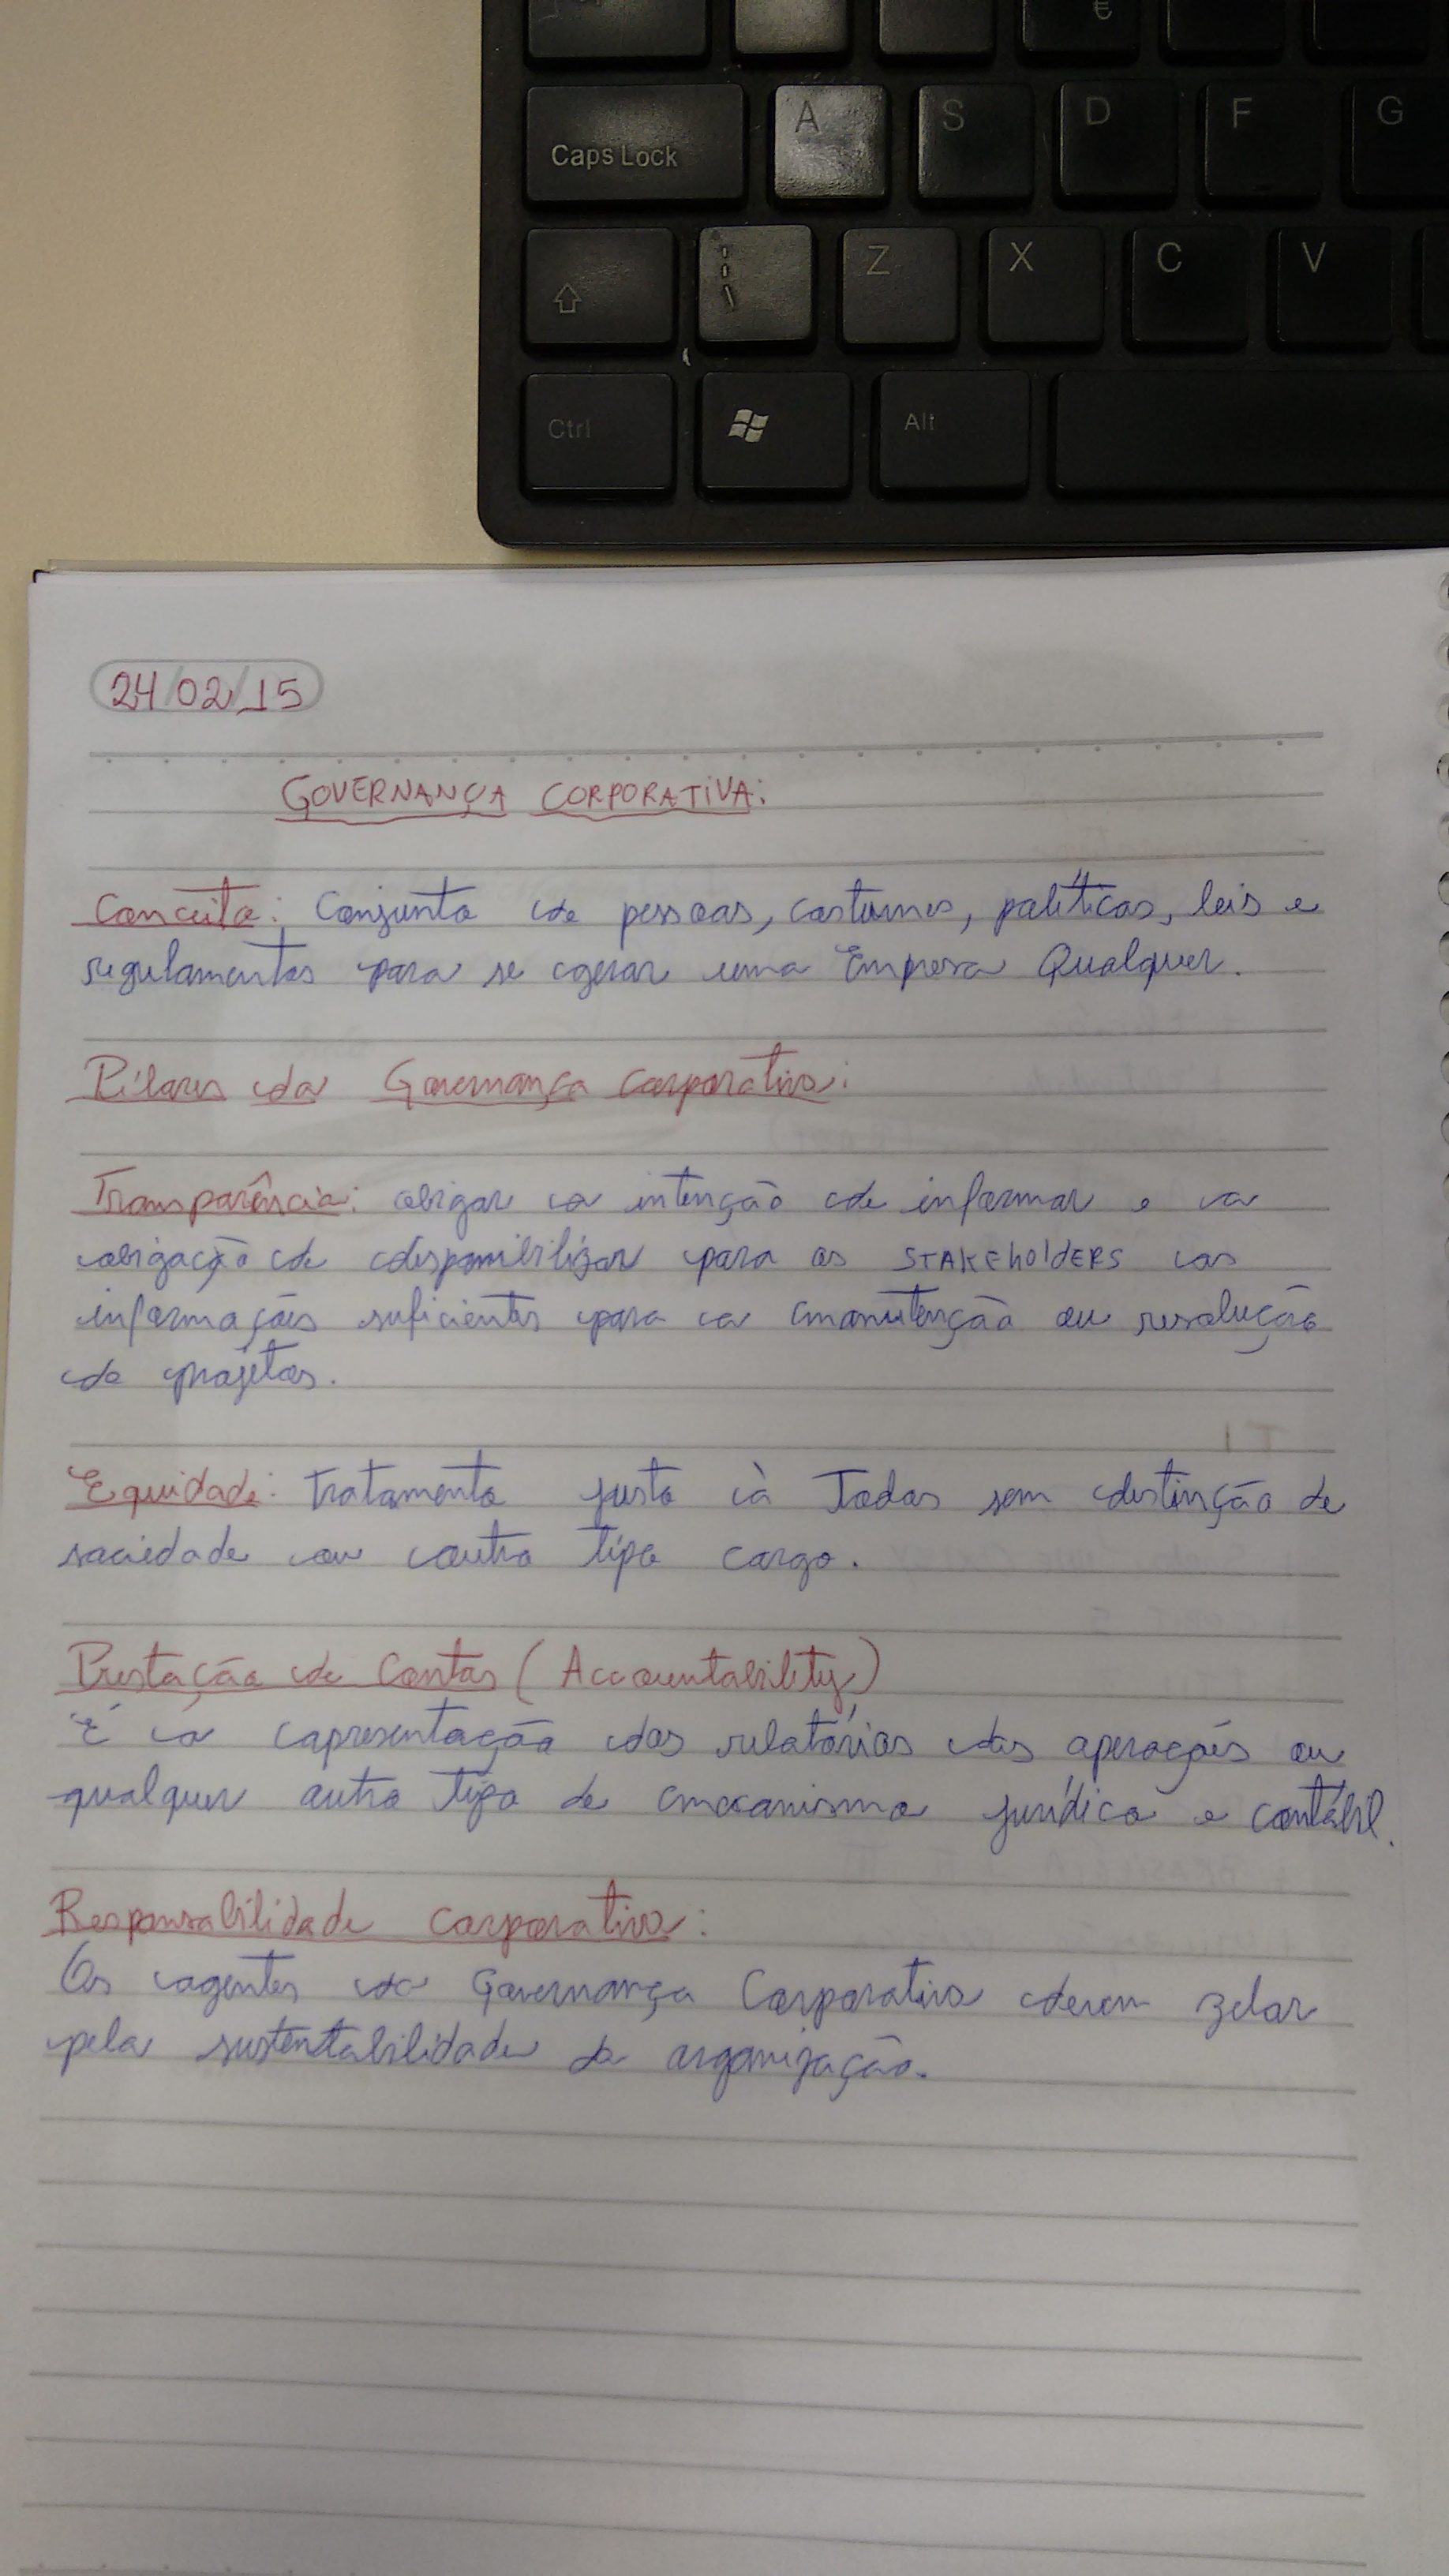 €
A S D F G
Caps Lock
Z X C V
\
Ctrl Alt
24/02/15
GOVERNANÇA CORPORATIVA:
Conceito: Conjunto de pessoas, costumes, políticas, leis e
regulamentos para se gerar uma Empresa Qualquer.
Pilares da Governança corporativa:
Transparência: obrigar a intenção de informar e a
obrigação de disponibilizar para os STAKEholdERS as
informações suficientes para a manutenção ou resolução
de projetos.
Equidade: Tratamento justo à Todos sem distinção de
sociedade ou outro tipo cargo.
Prestação de Contas (Accountability)
É a apresentação dos relatórios das operações ou
qualquer outro tipo de mecanismo jurídico e contábil.
Responsabilidade corporativa:
Os agentes da Governança Corporativa devem zelar
pela sustentabilidade da organização.